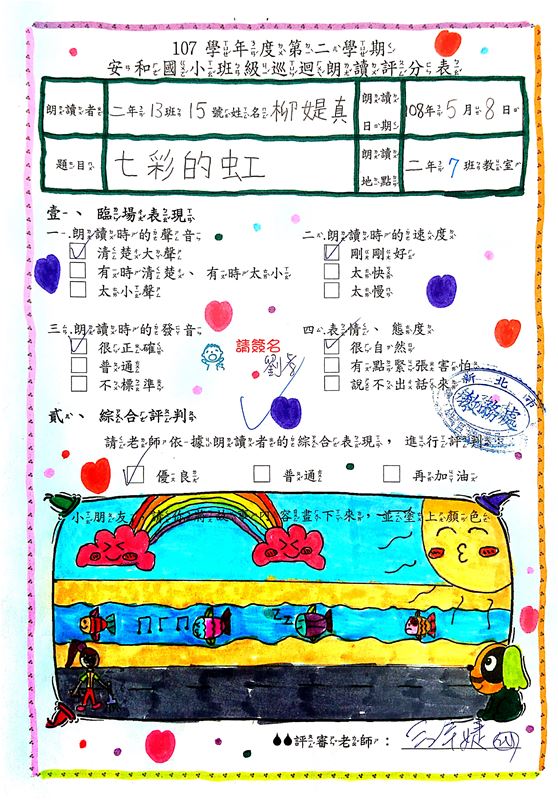 107 學年度第二學期
安和國小班級巡迴朗讀評分表
朗讀者 二年13班15號姓名柳媞真 朗讀日期 108年5月8日
題目 七彩的虹 朗讀地點 二年7班教室
壹、臨場表現
一.朗讀時的聲音
清楚大聲
有時清楚、有時太小
太小聲
二.朗讀時的速度
剛剛好
太快
太慢
三.朗讀時的發音
很正確
普通
不標準
請簽名
四.表情、態度
很自然
有點緊張害怕
說不出話來
新北市
教務處
貳、綜合評判
請老師依據朗讀者的綜合表現,進行評判
優良 普通 再加油
小朋友,請你將 內容畫下來,並塗上顏色
zz
評審老師: